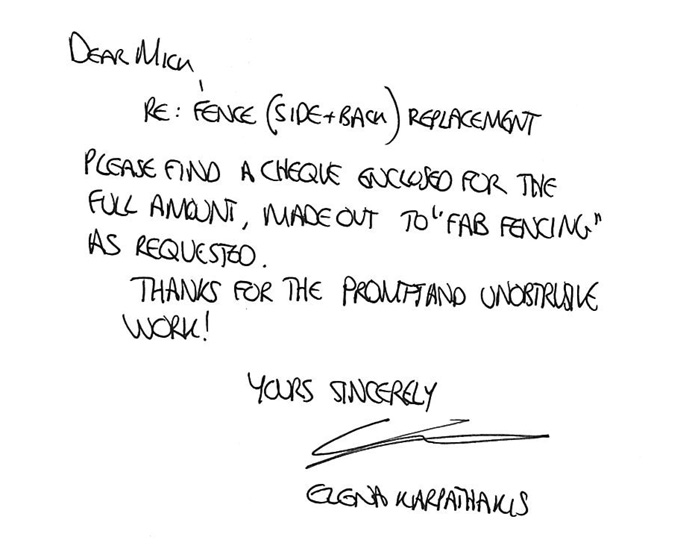 DEAR MICK,
RE: FENCE (SIDE+BACK) REPLACEMENT
PLEASE FIND A CHEQUE ENCLOSED FOR THE
FULL AMOUNT, MADE OUT TO "FAB FENCING"
AS REQUESTED.
THANKS FOR THE PROMPT AND UNOBTRUSIVE
WORK!
YOURS SINCERELY
ELENA KARPATHAKIS